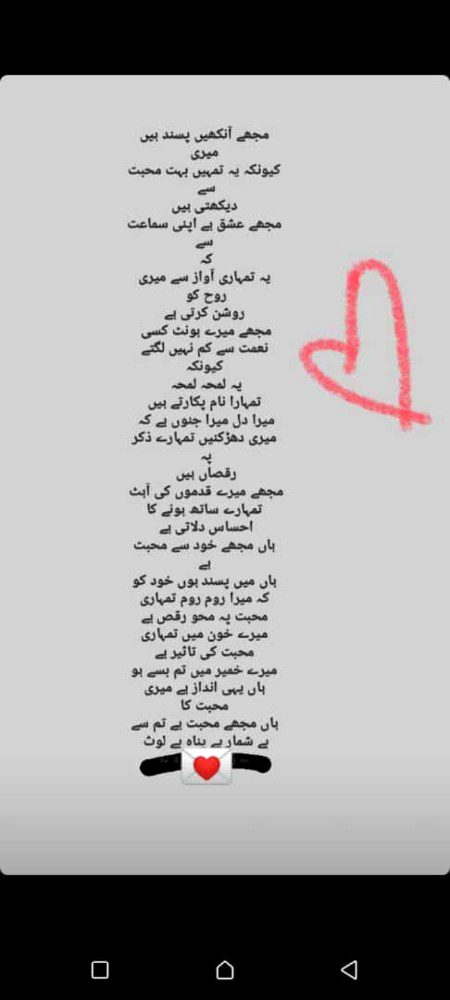 مجھے آنکھیں پسند ہیں
میری
کیونکہ یہ تمہیں بہت محبت
سے
دیکھتی ہیں
مجھے عشق ہے اپنی سماعت
سے
کہ
یہ تمہاری آواز سے میری
روح کو
روشن کرتی ہے
مجھے میرے ہونٹ کسی
نعمت سے کم نہیں لگتے
کیونکہ
یہ لمحہ لمحہ
تمہارا نام پکارتے ہیں
میرا دل میرا جنوں ہے کہ
میری دھڑکنیں تمہارے ذکر
پہ
رقصاں ہیں
مجھے میرے قدموں کی آہٹ
تمہارے ساتھ ہونے کا
احساس دلاتی ہے
ہاں مجھے خود سے محبت
ہے
ہاں میں پسند ہوں خود کو
کہ میرا روم روم تمہاری
محبت پہ محو رقص ہے
میرے خون میں تمہاری
محبت کی تاثیر ہے
میرے خمیر میں تم بسے ہو
ہاں یہی انداز ہے میری
محبت کا
ہاں مجھے محبت ہے تم سے
بے شمار بے پناہ بے لوث